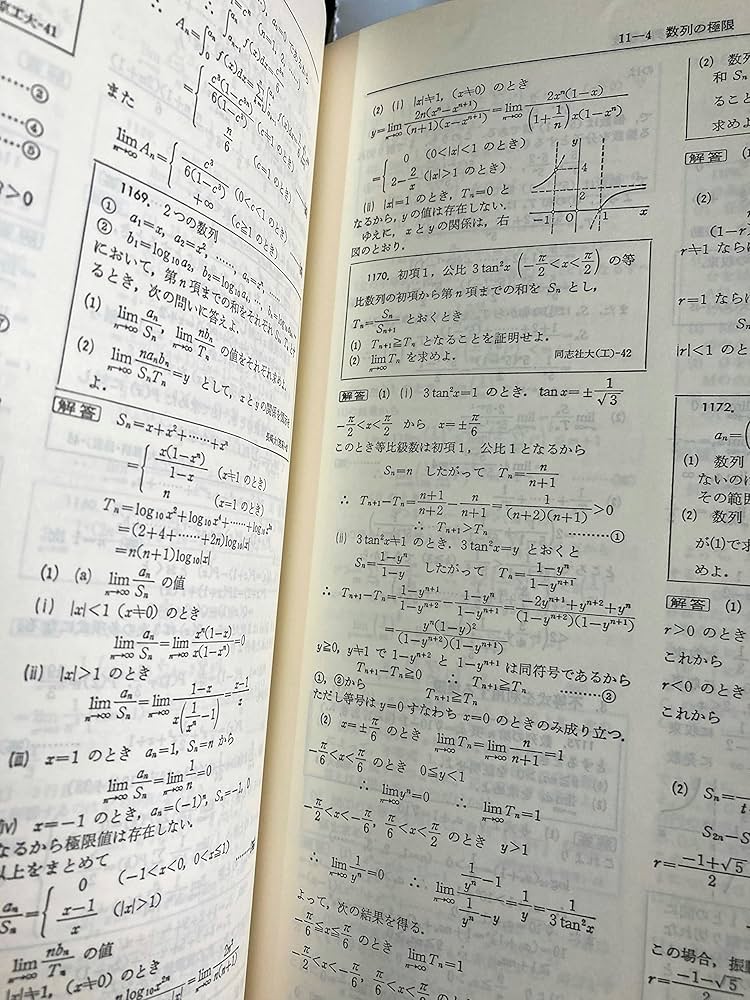 京工大-41
……③
……④
……⑤
また
lim Aₙ= n→∞
c³/6(1−c³) (0<c<1 のとき)
+∞ (c≧1 のとき)
1169. 2つの数列
① a₁=x, a₂=x², ……, aₙ=xⁿ, ……
② b₁=log₁₀a₂, b₂=log₁₀a₄, …
において, 第n項までの和をそれぞれ
るとき, 次の問いに答えよ.
(1) lim n→∞ aₙ/Sₙ, lim n→∞ nbₙ/Tₙ の値をそれぞれ求めよ.
(2) lim n→∞ naₙbₙ/SₙTₙ=y として, xとyの関係を図示せ
よ.
解答 Sₙ=x+x²+……+xⁿ
= x(1−xⁿ)/1−x (x≠1 のとき)
n (x=1 のとき)
Tₙ=log₁₀x²+log₁₀x⁴+……+log₁₀x²ⁿ
=(2+4+……+2n)log₁₀|x|
=n(n+1)log₁₀|x|
(1) (a) lim n→∞ aₙ/Sₙ の値
(i) |x|<1 (x≠0) のとき
lim n→∞ aₙ/Sₙ=lim n→∞ xⁿ(1−x)/x(1−xⁿ)=0
(ii) |x|>1 のとき
lim n→∞ aₙ/Sₙ=lim n→∞ 1−x/x(1/xⁿ−1)=x−1/x
(iii) x=1 のとき aₙ=1, Sₙ=n から
lim n→∞ aₙ/Sₙ=lim n→∞ 1/n=0
(iv) x=−1 のとき, aₙ=(−1)ⁿ, Sₙ=−1, 0
なるから極限値は存在しない.
以上をまとめて
aₙ/Sₙ= 0 (−1<x<0, 0<x≦1)
x−1/x (|x|>1)
lim n→∞ nbₙ/Tₙ の値
|x|≠1, (x≠0) のとき
11—4 数列の極限
(2) (i) |x|≠1, (x≠0) のとき
y=lim n→∞ 2n(xⁿ−xⁿ⁺¹)/(n+1)(x−xⁿ⁺¹)=lim n→∞ 2xⁿ(1−x)/(1+1/n)x(1−xⁿ)
= 0 (0<|x|<1 のとき)
2−2/x (|x|>1 のとき)
(ii) |x|=1 のとき, Tₙ=0 と
なるから, y の値は存在しない.
ゆえに, xとyの関係は, 右
図のとおり.
y
4
2
−1 0 1 x
1170. 初項1, 公比 3tan²x (−π/2<x<π/2) の等
比数列の初項から第n項までの和を Sₙ とし,
Tₙ=Sₙ/Sₙ₊₁ とおくとき
(1) Tₙ₊₁≧Tₙ となることを証明せよ.
(2) lim n→∞ Tₙ を求めよ. 同志社大(工)-42
解答 (1) (i) 3tan²x=1 のとき. tanx=±1/√3
−π/2<x<π/2 から x=±π/6
このとき等比級数は初項1, 公比1となるから
Sₙ=n したがって Tₙ=n/n+1
∴ Tₙ₊₁−Tₙ=n+1/n+2−n/n+1=1/(n+2)(n+1)>0
∴ Tₙ₊₁>Tₙ ………①
(ii) 3tan²x≠1 のとき. 3tan²x=y とおくと
Sₙ=1−yⁿ/1−y したがって Tₙ=1−yⁿ/1−yⁿ⁺¹
∴ Tₙ₊₁−Tₙ=1−yⁿ⁺¹/1−yⁿ⁺²−1−yⁿ/1−yⁿ⁺¹=−2yⁿ⁺¹+yⁿ⁺²+yⁿ/(1−yⁿ⁺²)(1−yⁿ⁺¹)
=yⁿ(1−y)²/(1−yⁿ⁺²)(1−yⁿ⁺¹)
y≧0, y≠1 で 1−yⁿ⁺² と 1−yⁿ⁺¹ は同符号であるから
Tₙ₊₁−Tₙ≧0 ∴ Tₙ₊₁≧Tₙ ………②
①, ②から Tₙ₊₁≧Tₙ
ただし等号は y=0 すなわち x=0 のときのみ成り立つ.
(2) x=±π/6 のとき lim n→∞ Tₙ=lim n→∞ n/n+1=1
−π/6<x<π/6 のとき 0≦y<1
∴ lim n→∞ yⁿ=0 ∴ lim n→∞ Tₙ=1
−π/2<x<−π/6, π/6<x<π/2 のとき y>1
∴ lim n→∞ 1/yⁿ=0 ∴ lim n→∞ 1/yⁿ−1/1/yⁿ−y=1/y=1/3tan²x
よって, 次の結果を得る.
−π/6≦x≦π/6 のとき lim n→∞ Tₙ=1
−π/2<x<−π/6, π/6<x<
(2) 数列
和 Sₙ
ること
求めよ
解答 (1)
(2)
(1−r)
r≠1 なら
r=1 なら
|r|<1 のと
1172.
aₙ=
(1) 数列
ないのは
その範囲
(2) 数列
が(1)で求
めよ.
解答 (1)
r>0 のとき
これから
r<0 のとき
これから
(2) Sₙ=
S₂ₙ−S
r=−1+√5/2
この場合, 振動
r=−1−√5